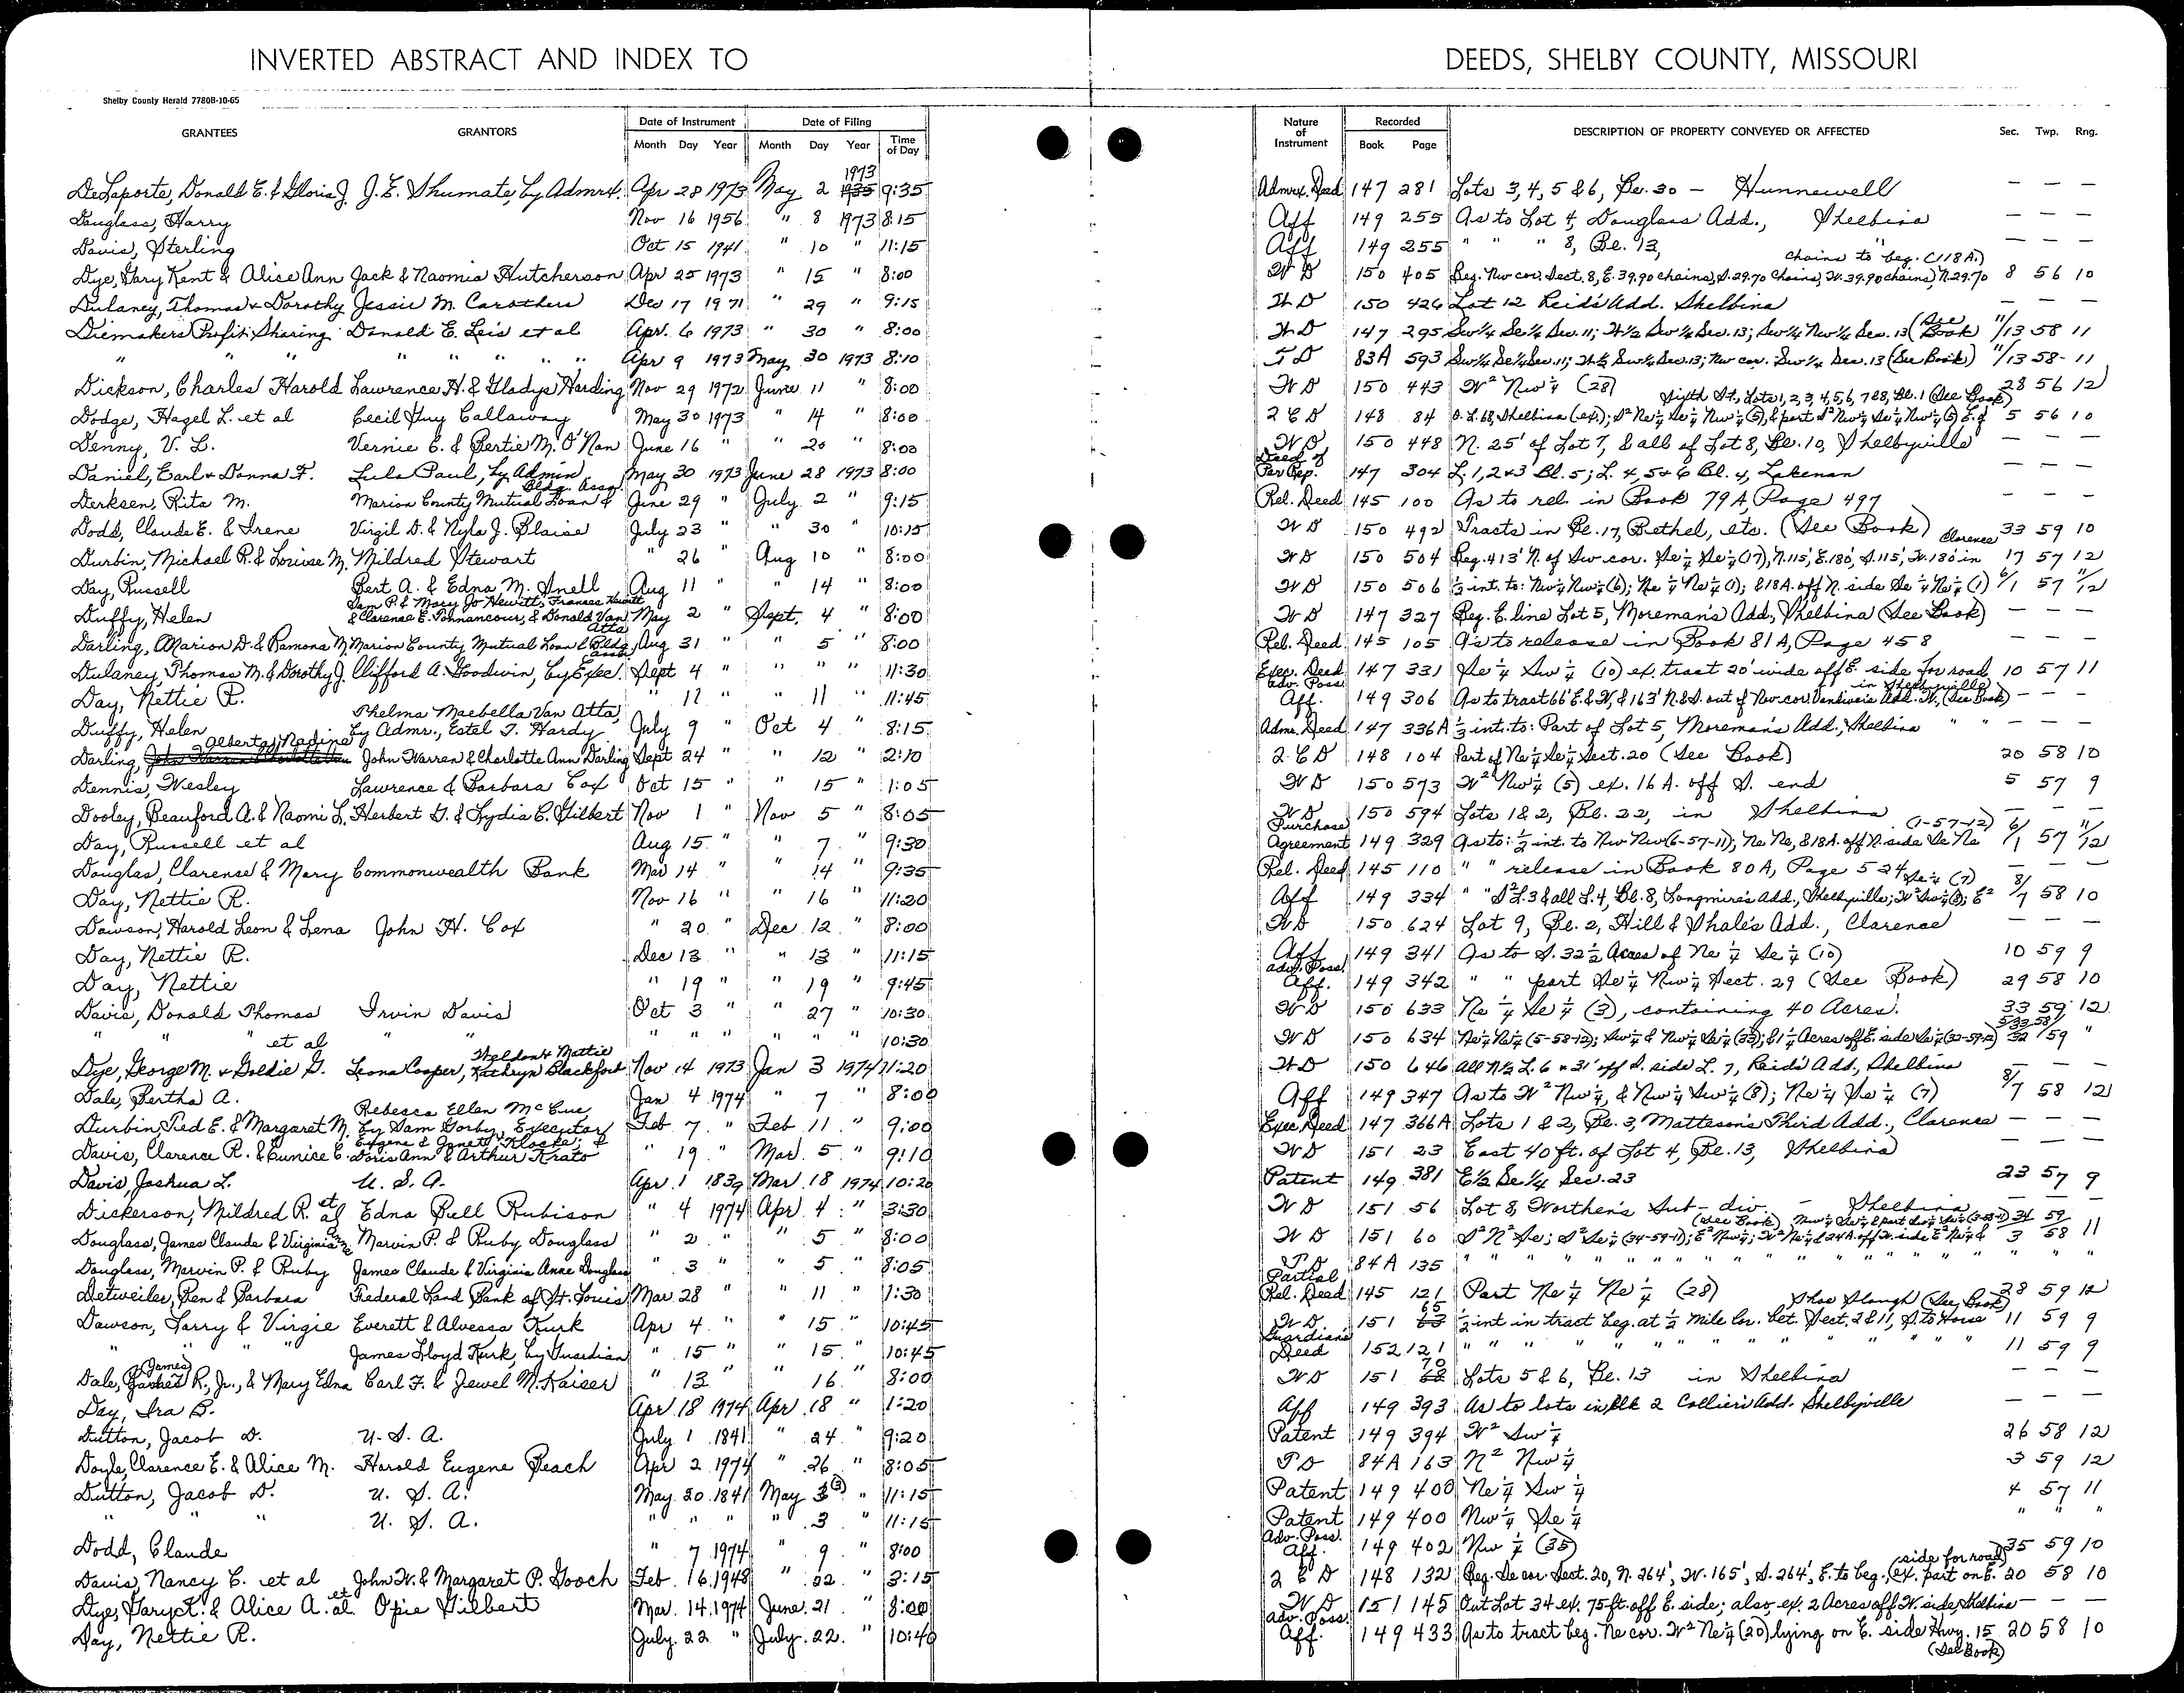 INVERTED ABSTRACT AND INDEX TO DEEDS, SHELBY COUNTY, MISSOURI
Shelby County Herald 7780B-10-65
GRANTEES GRANTORS Date of Instrument Month Day Year Date of Filing Month Day Year Time of Day Nature of Instrument Recorded Book Page DESCRIPTION OF PROPERTY CONVEYED OR AFFECTED Sec. Twp. Rng.
DeLaporte, Donald E. & Gloria J. J. E. Shumate, by Admrx. Apr 28 1973 May 2 1973 9:35 Admrx. Deed 147 281 Lots 3, 4, 5 & 6, Be. 30 — Hunnewell — — —
Douglass, Harry Nov 16 1956 " 8 1973 8:15 Aff 149 255 As to Lot 4, Douglass Add., Shelbina — — —
Davis, Sterling Oct 15 1941 " 10 " 11:15 Aff 149 255 " " " 8, Be. 13, " — — —
Dye, Gary Kent & Alice Ann Jack & Naomia Hutcherson Apr 25 1973 " 15 " 8:00 W D 150 405 Beg. Nw cor. Sect. 8, E. 39.90 chains, S. 29.70 Chains, W. 39.90 chains, N. 29.70 chains to beg. (118 A.) 8 56 10
Dulaney, Thomas & Dorothy Jessie M. Carothers Dec 17 1971 " 29 " 9:15 W D 150 426 Lot 12 Reid's Add. Shelbina — — —
Diemakers Profit Sharing Donald E. Leis et al Apr. 6 1973 " 30 " 8:00 W D 147 295 Sw¼ Se¼ Sec. 11; W½ Sw¼ Sec. 13; Sw¼ Nw¼ Sec. 13 (See Book) 11/13 58 11
" " " " " " " " Apr 9 1973 May 30 1973 8:10 T D 83A 593 Sw¼ Se¼ Sec. 11; W½ Sw¼ Sec. 13; Nw cor. Sw¼ Sec. 13 (See Book) 11/13 58- 11
Dickson, Charles Harold Lawrence H. & Gladys Harding Nov 29 1972 June 11 " 8:00 W D 150 443 W² Nw¼ (28) 28 56 12
Dodge, Hazel L. et al Cecil Guy Callaway May 30 1973 " 14 " 8:00 2 C D 148 84 O. L. 68, Shelbina (ex.); S² Ne¼ Se¼ Nw¼ (5), & part S² Nw¼ Se¼ Nw¼ (5) E. of Fifth St., Lots 1, 2, 3, 4, 5, 6, 7 & 8, Be. 1 (See Book) 5 56 10
Denny, V. L. Vernie C. & Bertie M. O'Nan June 16 " " 20 " 8:00 W D. 150 448 N. 25' of Lot 7, & all of Lot 8, Be. 10, Shelbyville — — —
Daniel, Earl & Donna F. Lula Paul, by Admin May 30 1973 June 28 1973 8:00 Deed of Per Rep. 147 304 L. 1, 2 & 3 Bl. 5; L. 4, 5 & 6 Bl. 4, Lakenan — — —
Derksen, Rita M. Marion County Mutual Loan & Bldg. Assn June 29 " July 2 " 9:15 Rel. Deed 145 100 As to rel. in Book 79 A, Page 497 — — —
Dodd, Claude E. & Irene Virgil D. & Nyla J. Blaise July 23 " " 30 " 10:15 W D 150 492 Tracts in Be. 17, Bethel, etc. (See Book) 33 59 10
Durbin, Michael R. & Louise M. Mildred Stewart " 26 " Aug 10 " 8:00 W D 150 504 Beg. 413' N. of Sw cor. Se¼ Se¼ (17), N. 115', E. 180', S. 115', W. 180' in Clarence 17 57 12
Day, Russell Bert A. & Edna M. Snell Aug 11 " " 14 " 8:00 W D 150 506 ½ int. to: Nw¼ Nw¼ (6); Ne¼ Ne¼ (1); & 18 A. off N. side Se¼ Ne¼ (1) 6/1 57 11/12
Duffy, Helen Sam P. & Mary Jo Hewitt, Frances Hewitt & Clarence E. Pohnancour, & Donald Van Atta May 2 " Sept. 4 " 8:00 W D 147 327 Beg. E. line Lot 5, Moreman's Add., Shelbina (See Book) — — —
Darling, Marion D. & Ramona M. Marion County Mutual Loan & Bldg Assn Aug 31 " " 5 " 8:00 Rel. Deed 145 105 As to release in Book 81 A, Page 458 — — —
Dulaney, Thomas M. & Dorothy J. Clifford A. Goodwin, by Exec. Sept 4 " " " " 11:30 Exec. Deed 147 331 Se¼ Sw¼ (10) ex. tract 20' wide off E. side for road 10 57 11
Day, Nettie R. " 11 " " 11 " 11:45 Adv. Poss. Aff. 149 306 As to tract 66' E. & W. & 163' N. & S. out of Nw cor. Add. W., in Shelbyville (See Book) — — —
Duffy, Helen Thelma Maebella Van Atta, by Admr., Estel T. Hardy July 9 " Oct 4 " 8:15 Adms. Deed 147 336A ⅓ int. to: Part of Lot 5, Moreman's Add., Shelbina " " —
Darling, Alberta Nadine John Warren & Charlotte Ann Darling Sept 24 " " 12 " 2:10 2 C D 148 104 Part of Ne¼ Se¼ Sect. 20 (See Book) 20 58 10
Dennis, Wesley Lawrence & Barbara Cox Oct 15 " " 15 " 1:05 W D 150 573 W² Nw¼ (5) ex. 16 A. off S. end 5 57 9
Dooley, Beauford A. & Naomi L. Herbert G. & Lydia C. Gilbert Nov 1 " Nov 5 " 8:05 W D 150 594 Lots 1 & 2, Be. 22, in Shelbina — — —
Day, Russell et al Aug 15 " " 7 " 9:30 Purchase Agreement 149 329 As to: ½ int. to Nw Nw (6-57-11); Ne Ne, & 18 A. off N. side Se Ne (1-57-12) 6/1 57 11/12
Douglas, Clarense & Mary Commonwealth Bank Mar 14 " " 14 " 9:35 Rel. Deed 145 110 " " release in Book 80 A, Page 524 — — —
Day, Nettie R. Nov 16 " " 16 " 11:20 Aff 149 334 " " S² L. 3 & all L. 4, Be. 8, Longmire's Add., Shelbyville; W² Sw¼ (8); E² Se¼ (7) 8/7 58 10
Dawson, Harold Leon & Lena John H. Cox " 20 " Dec 12 " 8:00 W D 150 624 Lot 9, Be. 2, Hill & Shale's Add., Clarence — — —
Day, Nettie R. Dec 13 " " 13 " 11:15 Aff 149 341 As to S. 32½ Acres of Ne¼ Se¼ (10) 10 59 9
Day, Nettie " 19 " " 19 " 9:45 Adv. Poss. Aff. 149 342 " " part Se¼ Nw¼ Sect. 29 (See Book) 29 58 10
Davis, Donald Thomas Irvin Davis Oct 3 " " 27 " 10:30 W D 150 633 Ne¼ Se¼ (3), containing 40 Acres. 33 59 12
" " " et al " " " " " " " " 10:30 W D 150 634 Ne¼ Ne¼ (5-58-12); Sw¼ & Nw¼ Se¼ (33); & 1¼ Acres off E. side Se¼ (32-59-12) 5/33/32 58/59 "
Dye, George M. & Goldie G. Leona Cooper, Sheldon & Mattie Kathryn Blackford Nov 14 1973 Jan 3 1974 11:20 W D 150 646 All N½ L. 6 & 31' off S. side L. 7, Reid's Add., Shelbina — — —
Dale, Bertha A. Jan 4 1974 " 7 " 8:00 Aff 149 347 As to W² Nw¼, & Nw¼ Sw¼ (8); Ne¼ Se¼ (7) 8/7 58 12
Durbin, Ted E. & Margaret M. Rebecca Ellen McCue by Sam Gorby, Executor Feb 7 " Feb 11 " 9:00 Exec. Deed 147 366A Lots 1 & 2, Be. 3, Matteson's Third Add., Clarence — — —
Davis, Clarence R. & Eunice C. Eugene & Janett Klocke; & Doris Ann & Arthur Krato " 19 " Mar. 5 " 9:10 W D 151 23 East 40 ft. of Lot 4, Be. 13, Shelbina — — —
Davis, Joshua L. U. S. A. Apr 1 1839 Mar 18 1974 10:20 Patent 149 381 E½ Se¼ Sec. 23 23 57 9
Dickerson, Mildred R. et al Edna Bell Rubison " 4 1974 Apr. 4 " 3:30 W D 151 56 Lot 8, Worthen's Sub-div. — Shelbina — — —
Douglass, James Claude & Virginia Anne Marvin P. & Ruby Douglass " 2 " " 5 " 8:00 W D 151 60 S² N² Se; S² Se¼ (34-59-11); E² Nw¼; W² Ne¼ & 24 A. off W. side E² Ne¼ & (See Book) 34/3 59/58 11
Douglass, Marvin P. & Ruby James Claude & Virginia Anne Douglass " 3 " " 5 " 8:05 T D 84 A 135 " " " " " " " " " " " " " " "
Detweiler, Ben & Barbara Federal Land Bank of St. Louis Mar. 28 " " 11 " 1:30 Partial Rel. Deed 145 121 Part Ne¼ Ne¼ (28) 28 59 12
Dawson, Larry & Virgie Everett & Alvessa Kurk Apr 4 " " 15 " 10:45 W D 151 65 ½ int in tract beg. at ½ mile Cor. bet. Sect. 2 & 11, S. to Horse Shoe Slough (See Book) 11 59 9
" " " James Lloyd Kurk, by Guardian " 15 " " 15 " 10:45 Guardian's Deed 152 121 " " " " " " " " " " 11 59 9
Dale, James R., Jr., & Mary Edna Carl F. & Jewel M. Kaiser " 13 " " 16 " 8:00 W D 151 70 Lots 5 & 6, Be. 13 in Shelbina — — —
Day, Ira B. Apr 18 1974 Apr 18 " 1:20 Aff 149 393 As to lots in Blk 2 Collier's Add. Shelbyville — — —
Dutton, Jacob D. U. S. A. July 1 1841 " 24 " 9:20 Patent 149 394 W² Sw¼ 26 58 12
Doyle, Clarence E. & Alice M. Harold Eugene Beach Apr 2 1974 " 26 " 8:05 T D 84 A 163 N² Nw¼ 3 59 12
Dutton, Jacob D. U. S. A. May 20 1841 May 3 (3) " 11:15 Patent 149 400 Ne¼ Sw¼ 4 57 11
" " " U. S. A. " " " " 3 " 11:15 Patent 149 400 Nw¼ Se¼ " " "
Dodd, Claude " 7 1974 " 9 " 8:00 Adv. Poss. Aff. 149 402 Nw¼ (35) 35 59 10
Davis, Nancy C. et al John W. & Margaret P. Gooch Feb. 16 1948 " 22 " 3:15 2 C D 148 132 Beg. Se cor. Sect. 20, N. 264', W. 165', S. 264', E. to beg., (ex. part on E. side for road) 20 58 10
Dye, Gary K. & Alice A. et al Opie Gilbert Mar. 14 1974 June 21 " 8:00 W D 151 145 Out Lot 34 ex. 75 ft. off E. side; also, ex. 2 Acres off W. side, Shelbina — — —
Day, Nettie R. July 22 " July 22 " 10:40 Adv. Poss. Aff. 149 433 As to tract beg. Ne cor. W² Ne¼ (20) lying on E. side Hwy. 15 (See Book) 20 58 10